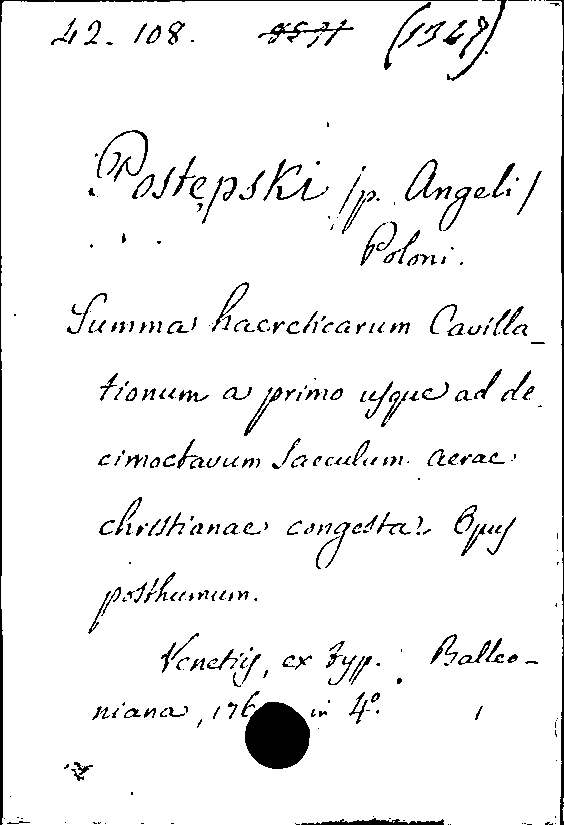 42. 108. 8531 (1327)
Postępski /p. Angeli/
Poloni.
Summa haereticarum Cavilla_
tionum a primo usque ad de_
cimoctavum Saeculum aerae
christianae congesta. Opus
posthumum.
Venetijs, ex typ. Balleo-
niana, 176 in 4°. 1